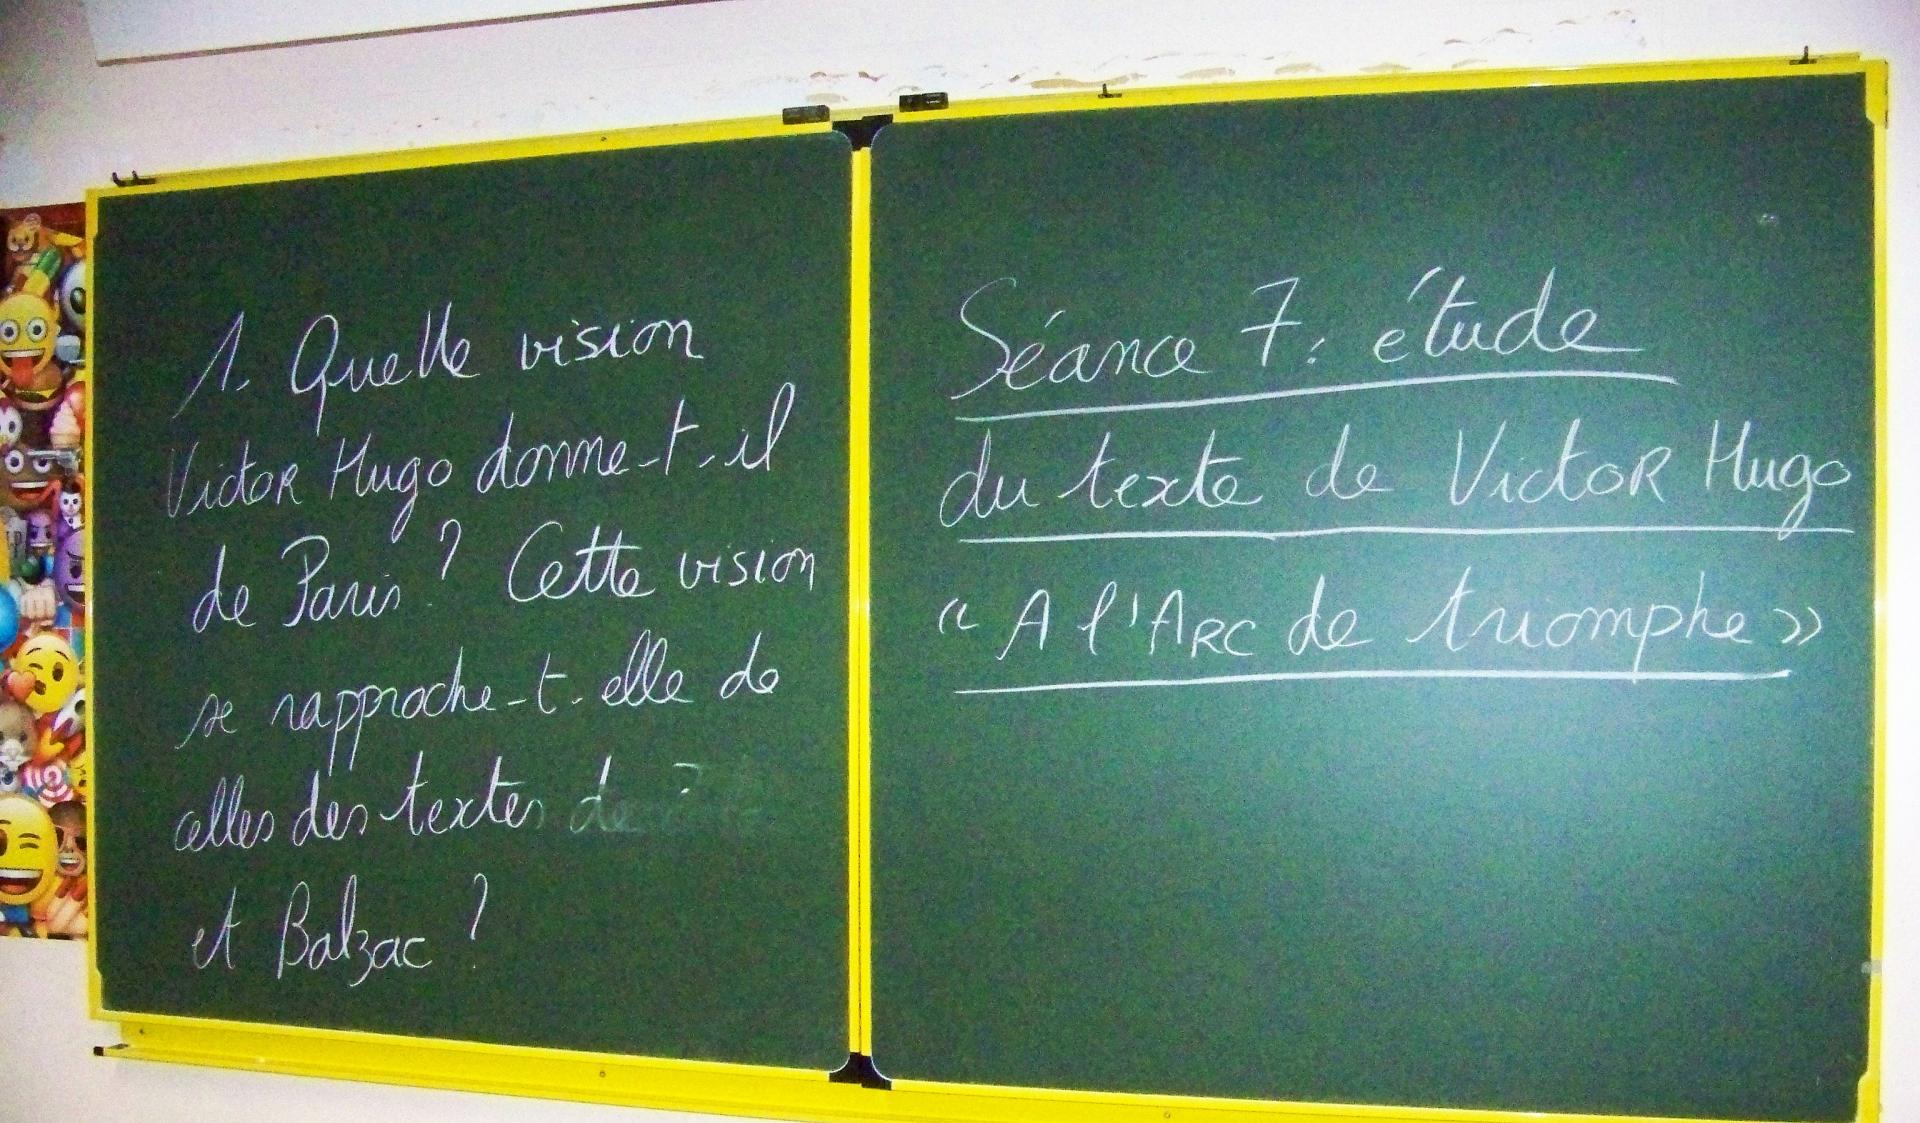 1. Quelle vision
Victor Hugo donne-t-il
de Paris ? Cette vision
se rapproche-t-elle de
celles des textes de
et Balzac ?
Séance 7 : étude
du texte de Victor Hugo
« A l'Arc de triomphe »